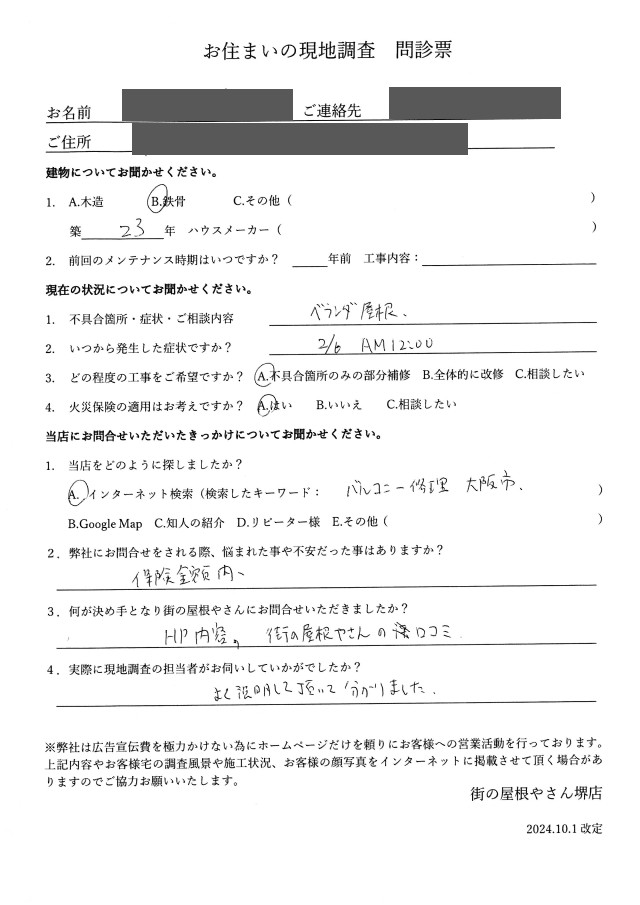 お住まいの現地調査　問診票
お名前　ご連絡先
ご住所
建物についてお聞かせください。
1.　A.木造　B.鉄骨　C.その他（　）
築 23 年　ハウスメーカー（　）
2.　前回のメンテナンス時期はいつですか？　＿＿年前　工事内容：
現在の状況についてお聞かせください。
1.　不具合箇所・症状・ご相談内容　ベランダ屋根、
2.　いつから発生した症状ですか？　2/6 AM12:00
3.　どの程度の工事をご希望ですか？　A.不具合箇所のみの部分補修　B.全体的に改修　C.相談したい
4.　火災保険の適用はお考えですか？　A.はい　B.いいえ　C.相談したい
当店にお問合せいただいたきっかけについてお聞かせください。
1.　当店をどのように探しましたか？
A.インターネット検索（検索したキーワード：　バルコニー修理　大阪市、）
B.Google Map　C.知人の紹介　D.リピーター様　E.その他（　）
２．弊社にお問合せをされる際、悩まれた事や不安だった事はありますか？
保険金額内、
３．何が決め手となり街の屋根やさんにお問合せいただきましたか？
HP内容。街の屋根やさんの口コミ.
４．実際に現地調査の担当者がお伺いしていかがでしたか？
よく説明して頂いて分かりました.
※弊社は広告宣伝費を極力かけない為にホームページだけを頼りにお客様への営業活動を行っております。
上記内容やお客様宅の調査風景や施工状況、お客様の顔写真をインターネットに掲載させて頂く場合があ
りますのでご協力お願いいたします。
街の屋根やさん堺店
2024.10.1 改定